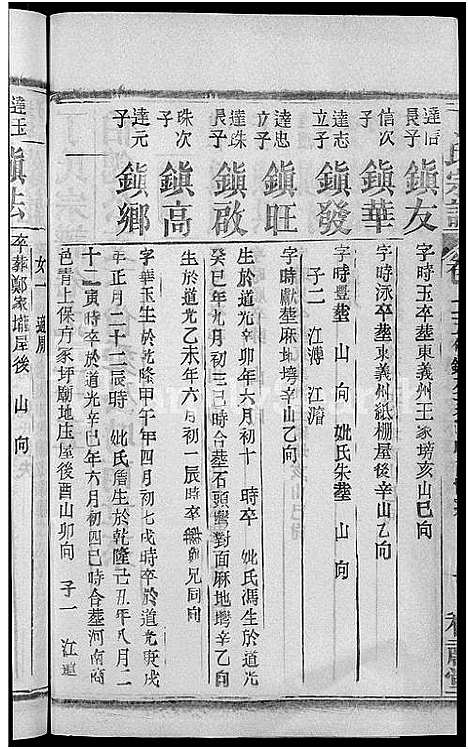 達信長子
鎮友
字時玉卒塟東義州王家塝亥山巳向
信次子
鎮華
字時泳卒塟東義州紙棚屋後辛山乙向
達志立子
鎮發
字時豐塟 山 向 妣氏朱塟 山 向
子二 江漙 江濳
達忠立子
鎮旺
字時獻塟麻地塆辛山乙向
達珠長子
鎮啟
生於道光辛卯年六月初十 時卒 妣氏馮生於道光
癸巳年九月初三巳時合塟石頭灣對面麻地塆辛乙向
珠次子
鎮高
生於道光乙未年六月初一辰時卒 兄同向
達元子
鎮鄉
字華玉生於乾隆甲午年四月初七戌時卒於道光庚戌
年正月二十二辰時 妣氏詹生於乾隆己丑年八月二
十二寅時卒於道光辛巳年六月初四巳時合塟河南商
邑青上保方家坪廟地庄屋後酉山卯向 子一 江
達玉
鎮法
卒葬鄭家壠屋後 山 向
女一 適